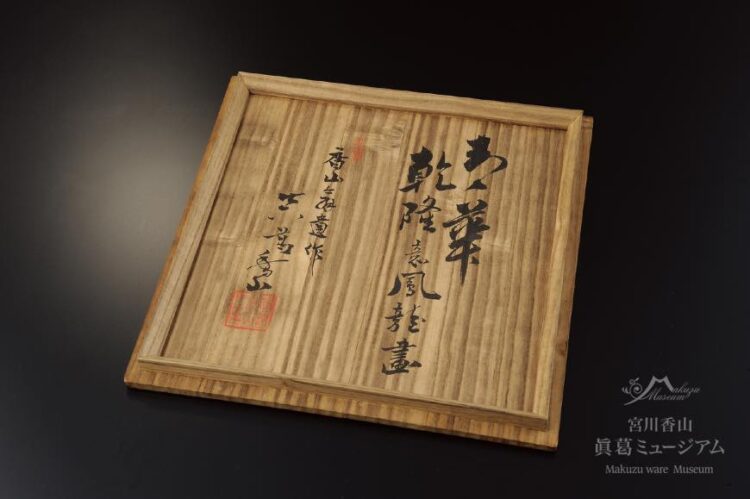 青華
乾隆鳳龍畫
香山翁遺作
真葛香山
Makuzu
Museum
宮川香山
眞葛ミュージアム
Makuzu ware Museum